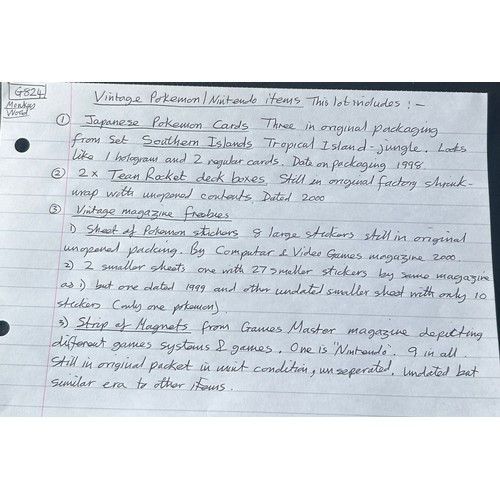 G824
Monkey
World
Vintage Pokemon/Nintendo items This lot includes :-
① Japanese Pokemon Cards Three in original packaging
from set Southern Islands Tropical Island - jungle. Looks
like 1 hologram and 2 regular cards. Date on packaging 1998.
② 2x Tean Rocket deck boxes. Still in original factory shrink-
wrap with unopened contents. Dated 2000
③ Vintage magazine freebies
1) Sheet of Pokemon stickers 8 large stickers still in original
unopened packing. By Computer & Video Games magazine 2000.
2) 2 smaller sheets one with 27 smaller stickers by same magazine
as 1) but one dated 1999 and other undated smaller sheet with only 10
stickers (only one pokemon).
3) Strip of Magnets from Games Master magazine depicting
different games systems & games. One is "Nintendo". 9 in all.
Still in original packet in mint condition, unseperated. Undated but
similar era to other items.